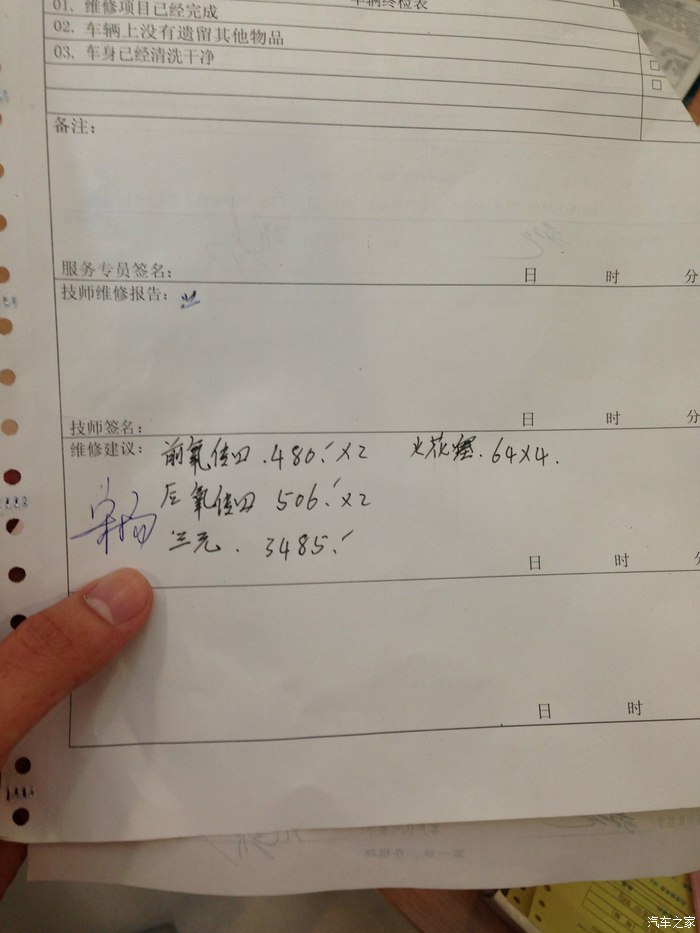 车辆终检表
01. 维修项目已经完成
02. 车辆上没有遗留其他物品
03. 车身已经清洗干净
□
□
备注:
服务专员签名: 日 时 分
技师维修报告:
技师签名: 日 时 分
维修建议: 前氧传四.480.×2 火花塞.64×4.
后氧传四 506.×2
三元. 3485.
日 时 分
日 时
汽车之家